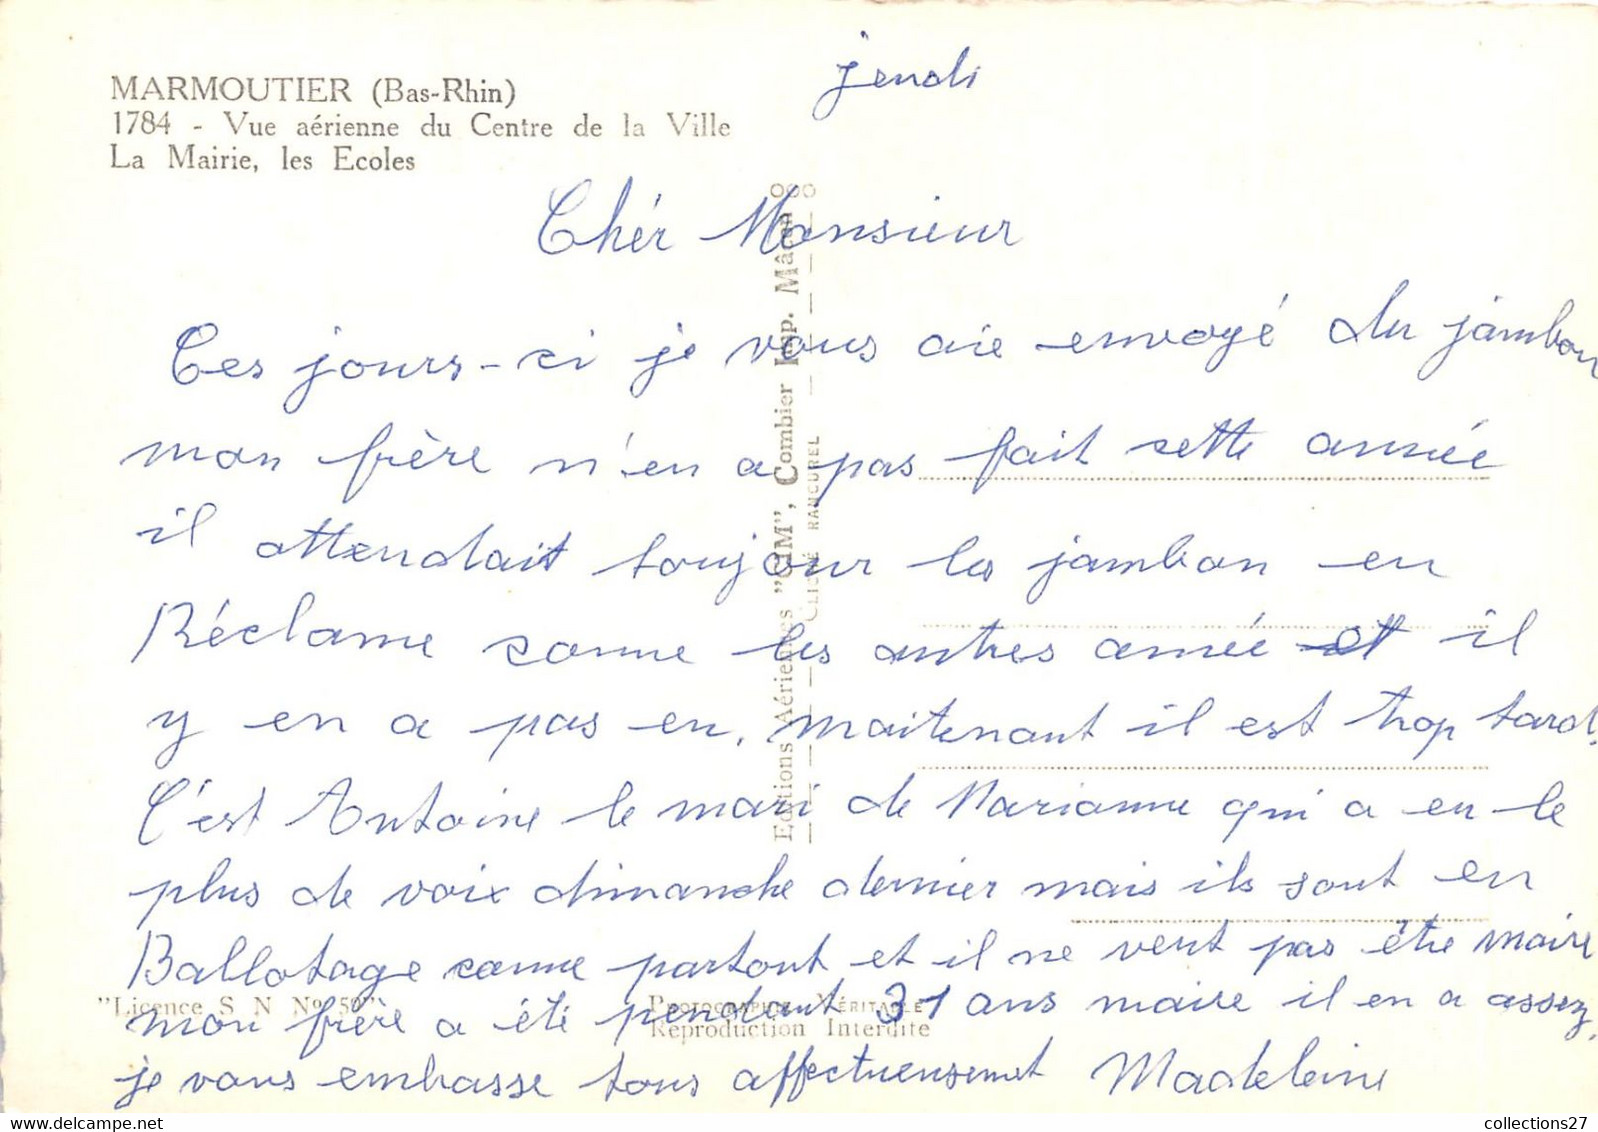 MARMOUTIER (Bas-Rhin)
1784 - Vue aérienne du Centre de la Ville
La Mairie, les Ecoles
jeudi
Chér Monsieur
Ces jours-ci je vous aie envoyé du jambon
mon frère n'en a pas fait cette année
il attendait toujour les jambon en
Réclame comme les autres année et il
y en a pas eu, maitenant il est trop tard.
C'est Antoine le mari de Marianne qui a eu le
plus de voix dimanche dernier mais ils sont en
Ballotage comme partout et il ne veut pas être maire
mon frère a été pendant 31 ans maire il en a assez,
je vous embrasse tous affectueusement Madeleine
Editions Aériennes "CIM", Combier Imp. Mâcon
CLICHÉ RANCUREL
"Licence S N N° 50"
PHOTOGRAPHIE VÉRITABLE
Reproduction Interdite
collections27